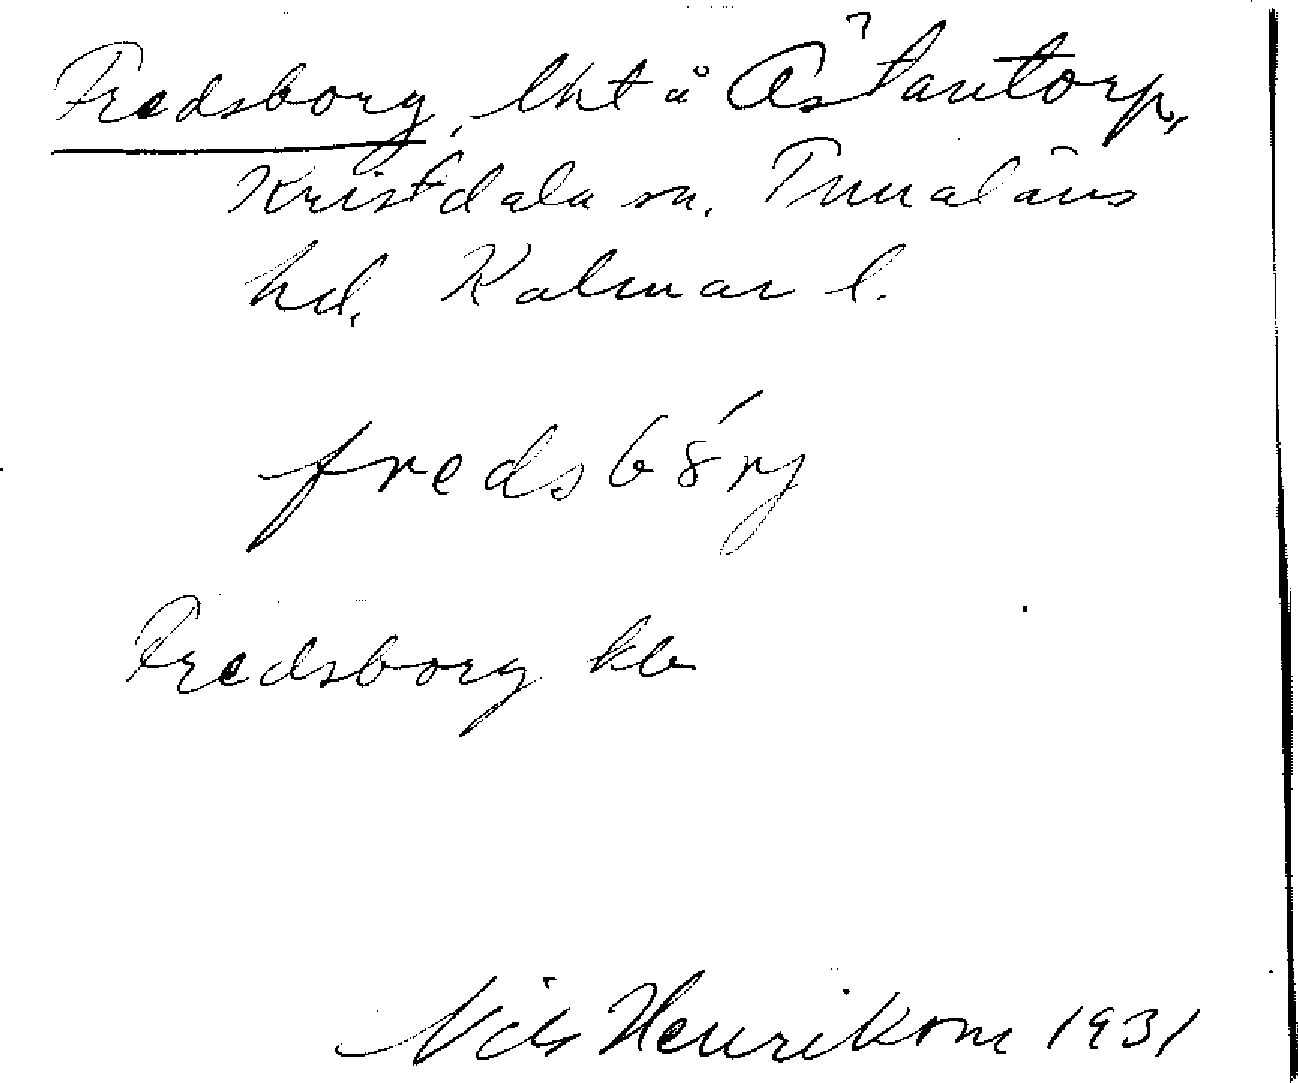 Fredsborg, lht å Åstantorp,
Kristdala sn. Tunaläns
hd. Kalmar l.
fredsbórj
Fredsborg kb
Nils Henrikson 1931